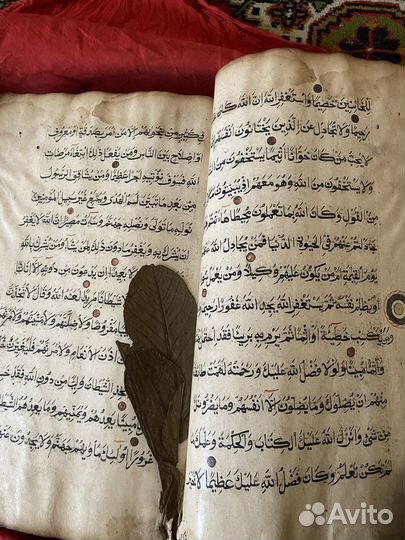 للخائنين خصيما واستغفر الله ان الله كان
رحيما ولا تجادل عن الذين يختانون انفسهم
لا يحب من كان خوانا اثيما يستخفون من
ولا يستخفون من الله وهو معهم اذ يبيتون ما
من القول وكان الله بما تعملون محيطا ها
جادلتم عنهم في الحيوة الدنيا فمن يجادل الله
يوم القيمة ام من يكون عليهم وكيلا ومن يعمل
او يظلم نفسه ثم يستغفر الله يجد الله غفورا رحيما
ومن يكسب خطيئة او اثما ثم يرم به بريئا فقد احتمل
واثما مبينا ولولا فضل الله عليك ورحمته لهمت
منهم ان يضلوك وما يضلون الا انفسهم وما يضرونك
من شئ وانزل الله عليك الكتاب والحكمة وعلمك ما
لم تكن تعلم وكان فضل الله عليك عظيما لا خير
في كثير من نجويهم الا من امر بصدقة او معروف
او اصلاح بين الناس ومن يفعل ذلك ابتغاء مرضات
الله فسوف نؤتيه اجرا عظيما ومن يشاقق الرسول
من بعد ما تبين له الهدى ويتبع غير سبيل المؤمنين
نوله ما تولى ونصله جهنم وساءت مصيرا ان الله لا يغفر
ان يشرك به ويغفر ما دون ذلك لمن يشاء ومن يشرك بالله
بعيدا ان يدعون من دونه الا اناثا
شيطانا مريدا لعنه الله وقال لاتخذن
مفروضا ولاضلنهم ولامنينهم
اذان الانعام ولامرنهم فليغيرن
يتخذ الشيطان وليا من دون الله فقد
مبينا يعدهم ويمنيهم وما يعدهم
غرورا اولئك مأويهم جهنم ولا يجدون عنها
Avito